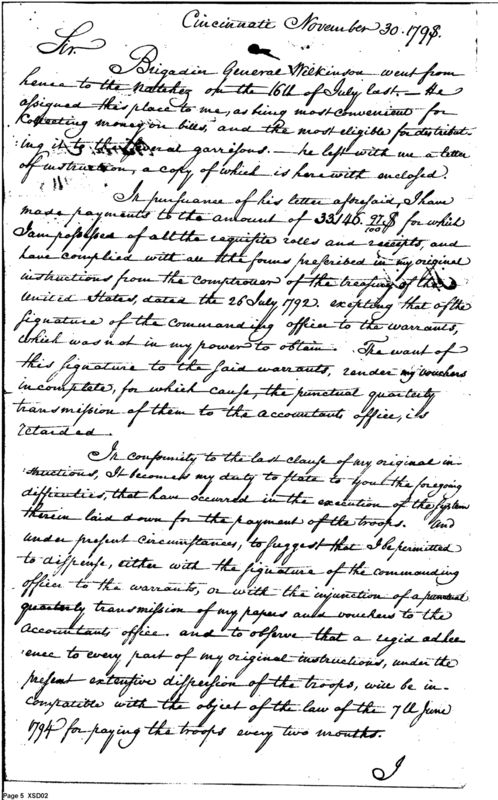 Cincinnati November 30. 1798.
Sir
Brigadier General Wilkinson went from
hence to the Natchez on the 16th of July last - He
assigned this place to me, as being most convenient for
Collecting money on bills, and the most eligible for distribut-
ing it to the several garrisons. - he left with me a letter
of instruction, a copy of which is herewith enclosed.
In pursuance of his letter aforesaid, I have
made payments to the amount of 33146. 27/100 $ for which
I am possessed of all the requisite rolls and receipts, and
have complied with all the forms prescribed in my original
instructions from the comptroller of the treasury of the
United States, dated the 26 July 1792. excepting that of the
signature of the commanding officer to the warrants,
which was not in my power to obtain. The want of
this signature to the said warrants, render my vouchers
incomplete, for which cause, the punctual quarterly
transmission of them to the accountants office, is
retarded.
In conformity to the last clause of my original in-
structions, It becomes my duty to state to you the foregoing
difficulties, that have occurred in the execution of the system
therein laid down for the payment of the troops. And
under present circumstances, to suggest that I be permitted
to dispense, either with the signature of the commanding
officer to the warrants, or with the injunction of a punctual
quarterly transmission of my papers and vouchers to the
Accountants office. and to observe that a regid adher
ence to every part of my original instructions, under the
present extensive dispersion of the troops, will be in-
compatible with the object of the law of the 7th June
1794 for paying the troops every two months.
I
Page 5 XSD02